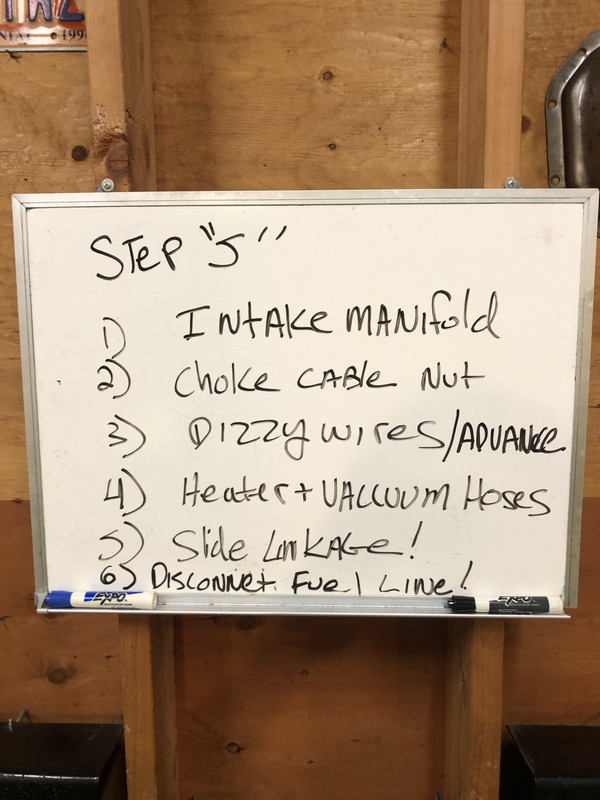 STEP "5"
1) INTAKE MANIFOLD
2) CHOKE CABLE NUT
3) DIZZY WIRES/ADVANCE
4) Heater + VACCUUM Hoses
5) Slide LINKAGE!
6) DISCONNET FUEL LINE!
EXPO EXPO